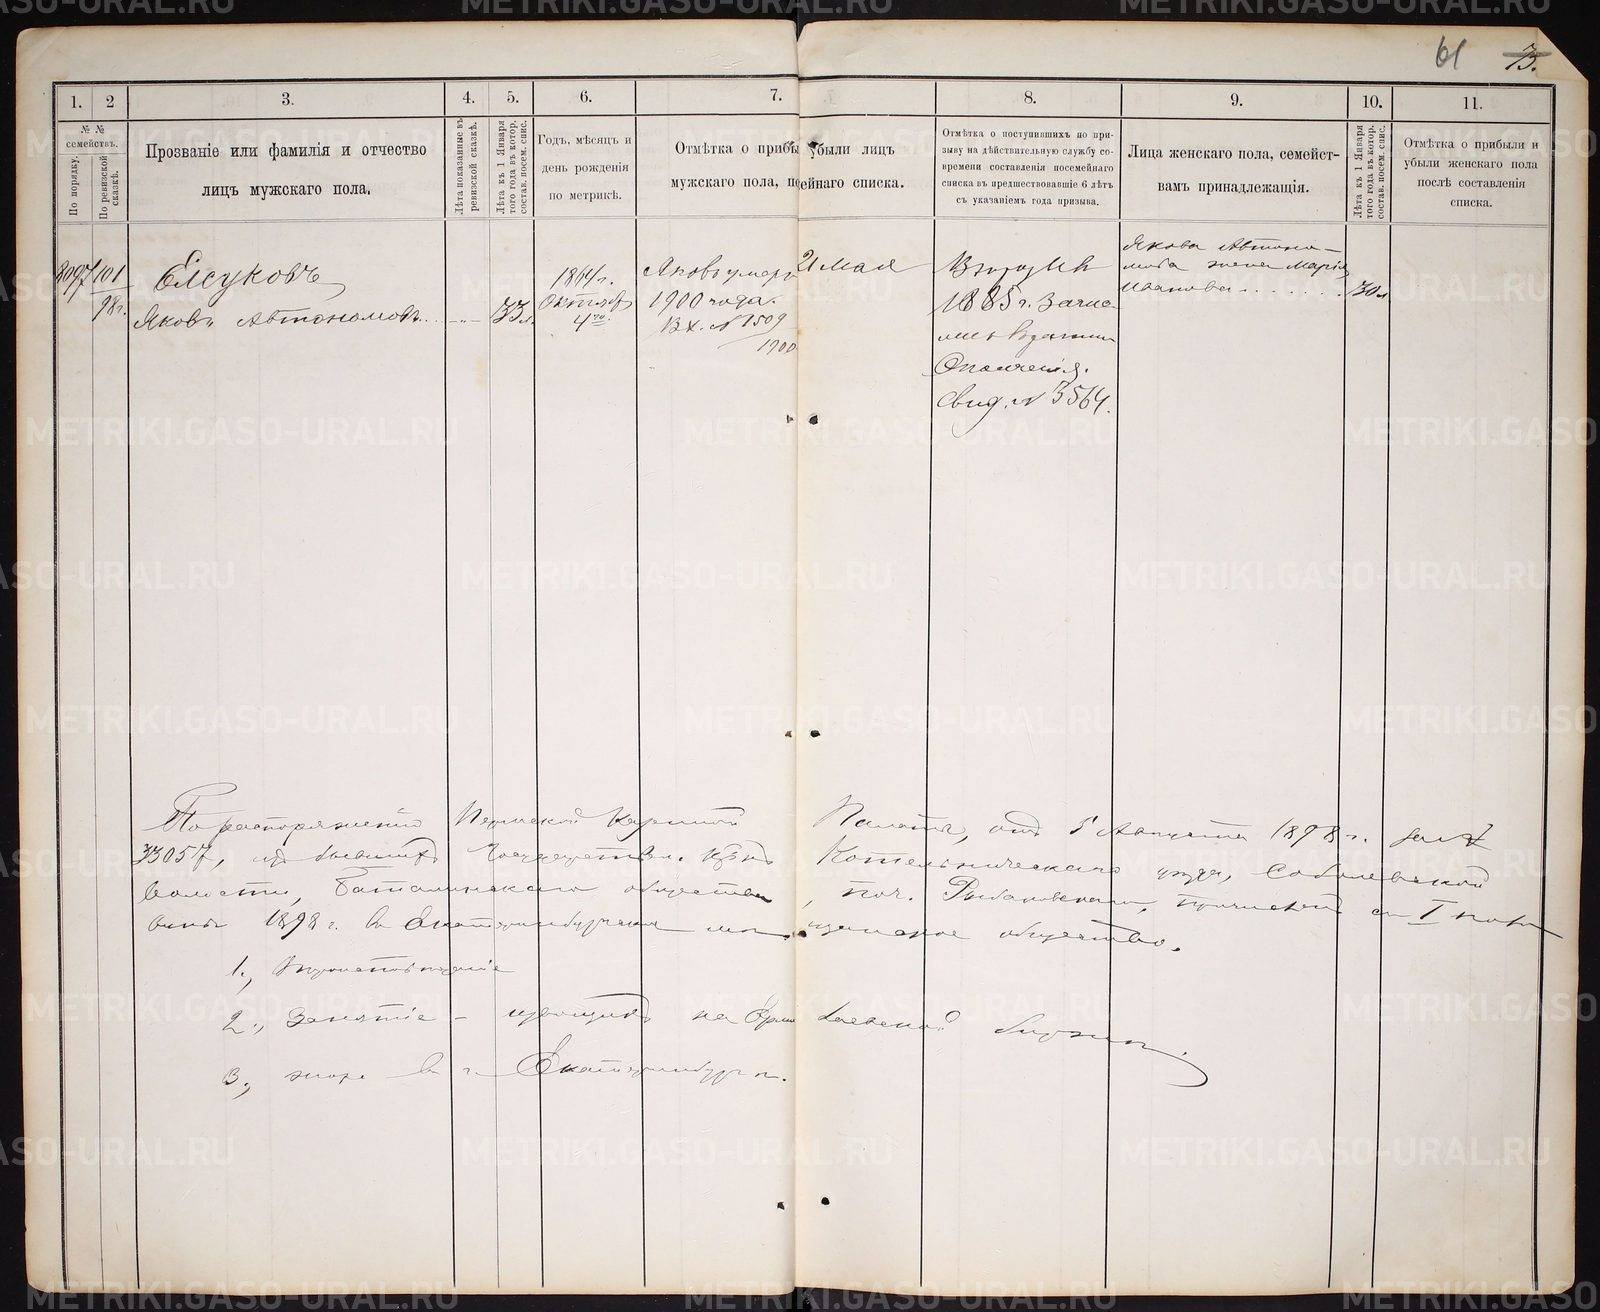 61 73.
1. 2 3. 4. 5. 6. 7. 8. 9. 10. 11.
№ №
семействъ.
По порядку.
По ревизской
сказкѣ.
Прозваніе или фамилія и отчество
лицъ мужскаго пола.
Лѣта показанные въ
ревизской сказкѣ.
Лѣта къ 1 Января
того года въ котор.
состав. посем. спис.
Годъ, мѣсяцъ и
день рожденія
по метрикѣ.
Отмѣтка о прибы убыли лицъ
мужскаго пола, по ейнаго списка.
Отмѣтка о поступившихъ по при-
зыву на дѣйствительную службу со-
времени составленія посемейнаго
списка въ предшествовавшіе 6 лѣтъ
съ указаніемъ года призыва.
Лица женскаго пола, семейст-
вамъ принадлежащія.
Лѣта къ 1 Января
того года въ котор.
состав. посем. спис.
Отмѣтка о прибыли и
убыли женскаго пола
послѣ составленія
списка.
8097 101
98 г.
Елсуковъ
Яковъ Автономовъ 33 л.
1864 г.
Октября
4го
Яковъ умеръ 21 Мая
1900 года.
Вх. № 1509
1900
1885 г. Зачис-
Ополченія.
Свид. № 3564.
Якова Автоно-
мова жена Марія
Иванова 30 л
По распоряженію Пермской Казенной Палаты, отъ 5 Августа 1898 г. за №
33057, изъ бывшихъ Государствен. Котельническаго уѣзда, Соболевской
волости, общества, поч. причисленъ съ I поло
вины 1898 г. въ Екатеринбургское мѣ щанское общество.
1.,
2., Занятіе – извощикъ на биржи.
3., живе въ г. Екатеринбурге.